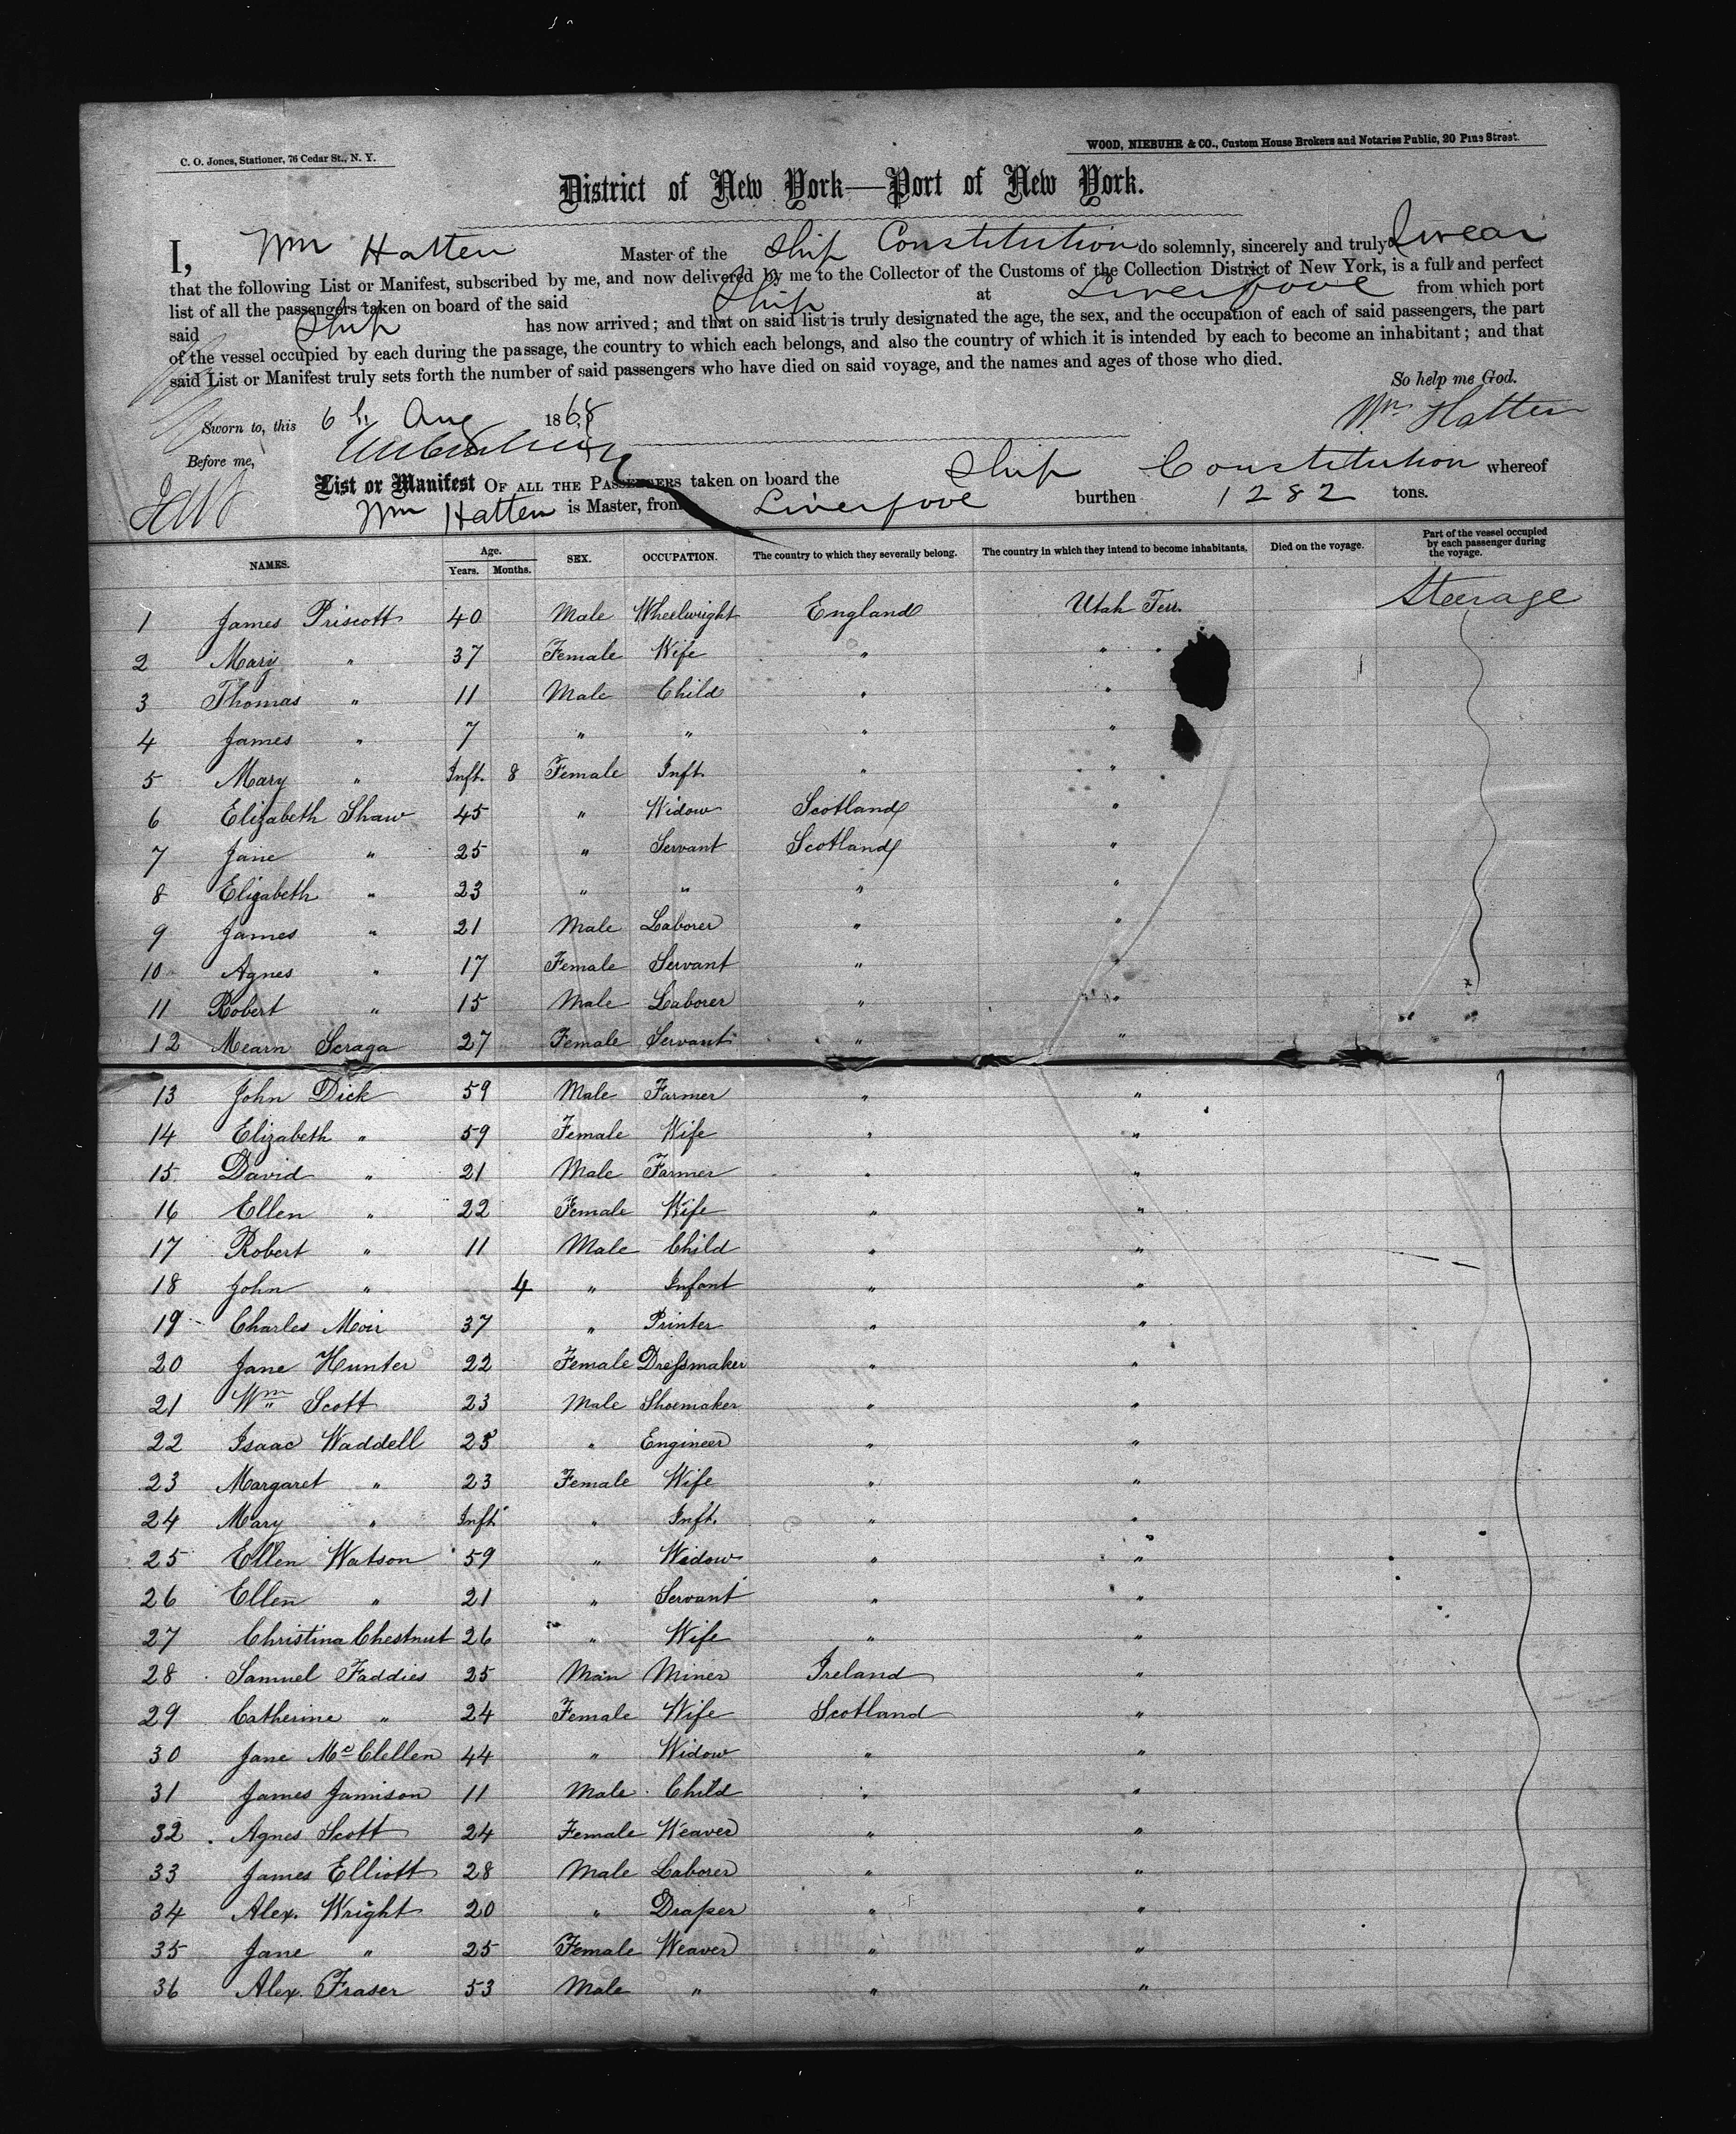 C. O. Jones, Stationer, 76 Cedar St., N. Y.
WOOD, NIEBUHR & CO., Custom House Brokers and Notaries Public, 20 Pine Street.
District of New York—Port of New York.
I, Wm Hatten Master of the Ship Constitution do solemnly, sincerely and truly Swear
that the following List or Manifest, subscribed by me, and now delivered by me to the Collector of the Customs of the Collection District of New York, is a full and perfect
list of all the passengers taken on board of the said Ship at Liverpool from which port
said Ship has now arrived; and that on said list is truly designated the age, the sex, and the occupation of each of said passengers, the part
of the vessel occupied by each during the passage, the country to which each belongs, and also the country of which it is intended by each to become an inhabitant; and that
said List or Manifest truly sets forth the number of said passengers who have died on said voyage, and the names and ages of those who died.
So help me God.
Sworn to, this 6th Aug 1868
Wm Hatten
Before me,
List or Manifest OF ALL THE PASSENGERS taken on board the Ship Constitution whereof
Wm Hatten is Master, from Liverpool burthen 1282 tons.
NAMES. Age. Years. Months. SEX. OCCUPATION. The country to which they severally belong. The country in which they intend to become inhabitants. Died on the voyage. Part of the vessel occupied by each passenger during the voyage.
1 James Priscott 40 Male Wheelwright England Utah Terr. Steerage
2 Mary " 37 Female Wife " "
3 Thomas " 11 Male Child " "
4 James " 7 " " " "
5 Mary " Inft. 8 Female Inft. " "
6 Elizabeth Shaw 45 " Widow Scotland "
7 Jane " 25 " Servant Scotland "
8 Elizabeth " 23 " " " "
9 James " 21 Male Laborer " "
10 Agnes " 17 Female Servant " "
11 Robert " 15 Male Laborer " "
12 Mearn Scraga 27 Female Servant " "
13 John Dick 59 Male Farmer " "
14 Elizabeth " 59 Female Wife " "
15 David " 21 Male Farmer " "
16 Ellen " 22 Female Wife " "
17 Robert " 11 Male Child " "
18 John " 4 " Infant " "
19 Charles Moir 37 " Printer " "
20 Jane Hunter 22 Female Dressmaker " "
21 Wm Scott 23 Male Shoemaker " "
22 Isaac Waddell 23 " Engineer " "
23 Margaret " 23 Female Wife " "
24 Mary " Inft. " Inft. " "
25 Ellen Watson 59 " Widow " "
26 Ellen " 21 " Servant " "
27 Christina Chestnut 26 " Wife " "
28 Samuel Faddies 25 Man Miner Ireland "
29 Catherine " 24 Female Wife Scotland "
30 Jane McClellen 44 " Widow " "
31 James Jamison 11 Male Child " "
32 Agnes Scott 24 Female Weaver " "
33 James Elliott 28 Male Laborer " "
34 Alex. Wright 20 " Draper " "
35 Jane " 25 Female Weaver " "
36 Alex. Fraser 53 Male " " "